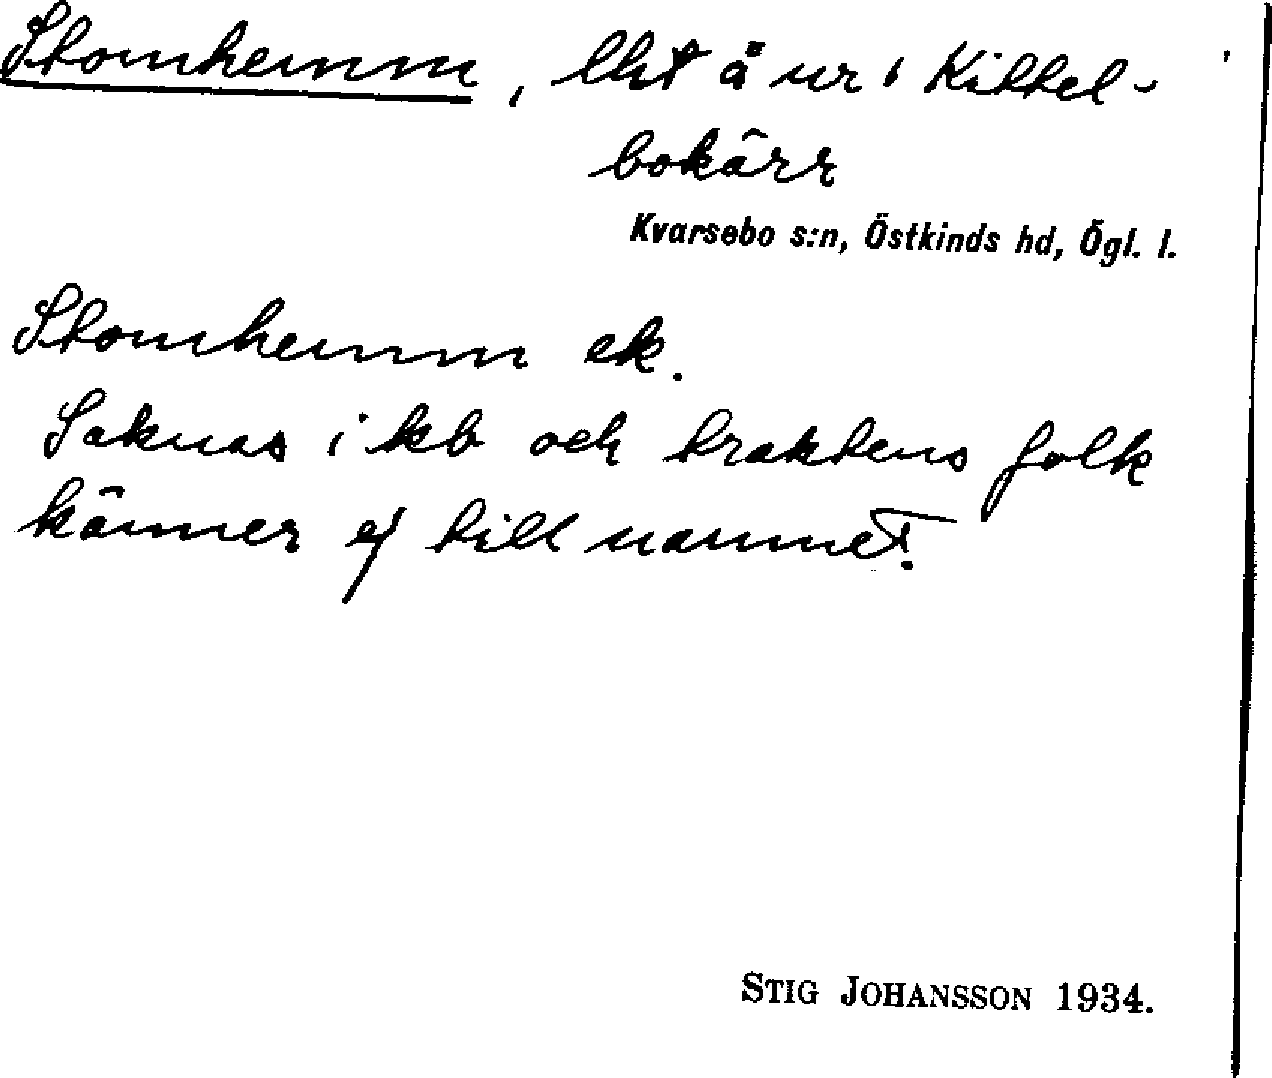 Stomhemm, lht å nr 1 Kittel-
bokärr
Kvarsebo s:n, Östkinds hd, Ögl. l.
Stomhemm ek.
Saknas i kb och traktens folk
känner ej till namnet.
STIG JOHANSSON 1934.